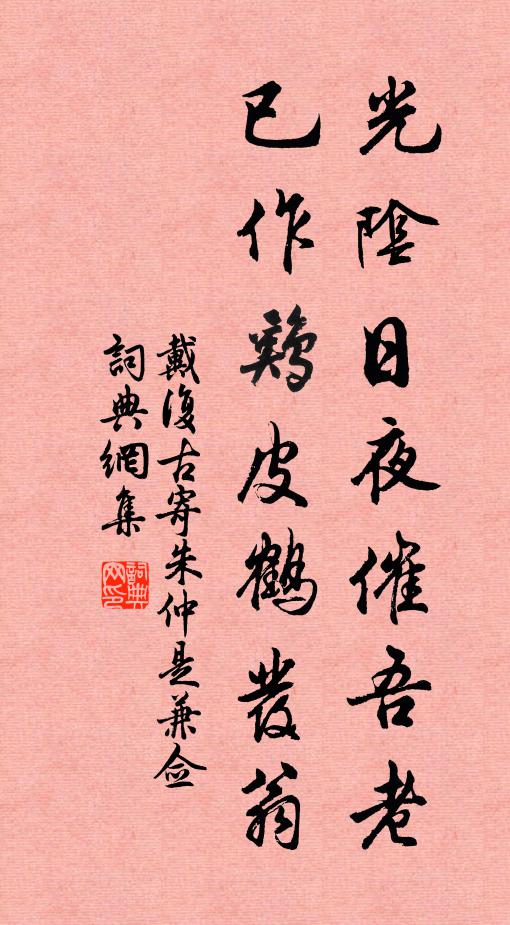 光陰日夜催吾老
已作鷄皮鶴發翁
戴復古寄朱仲是兼僉
詞典網集
詞典網印